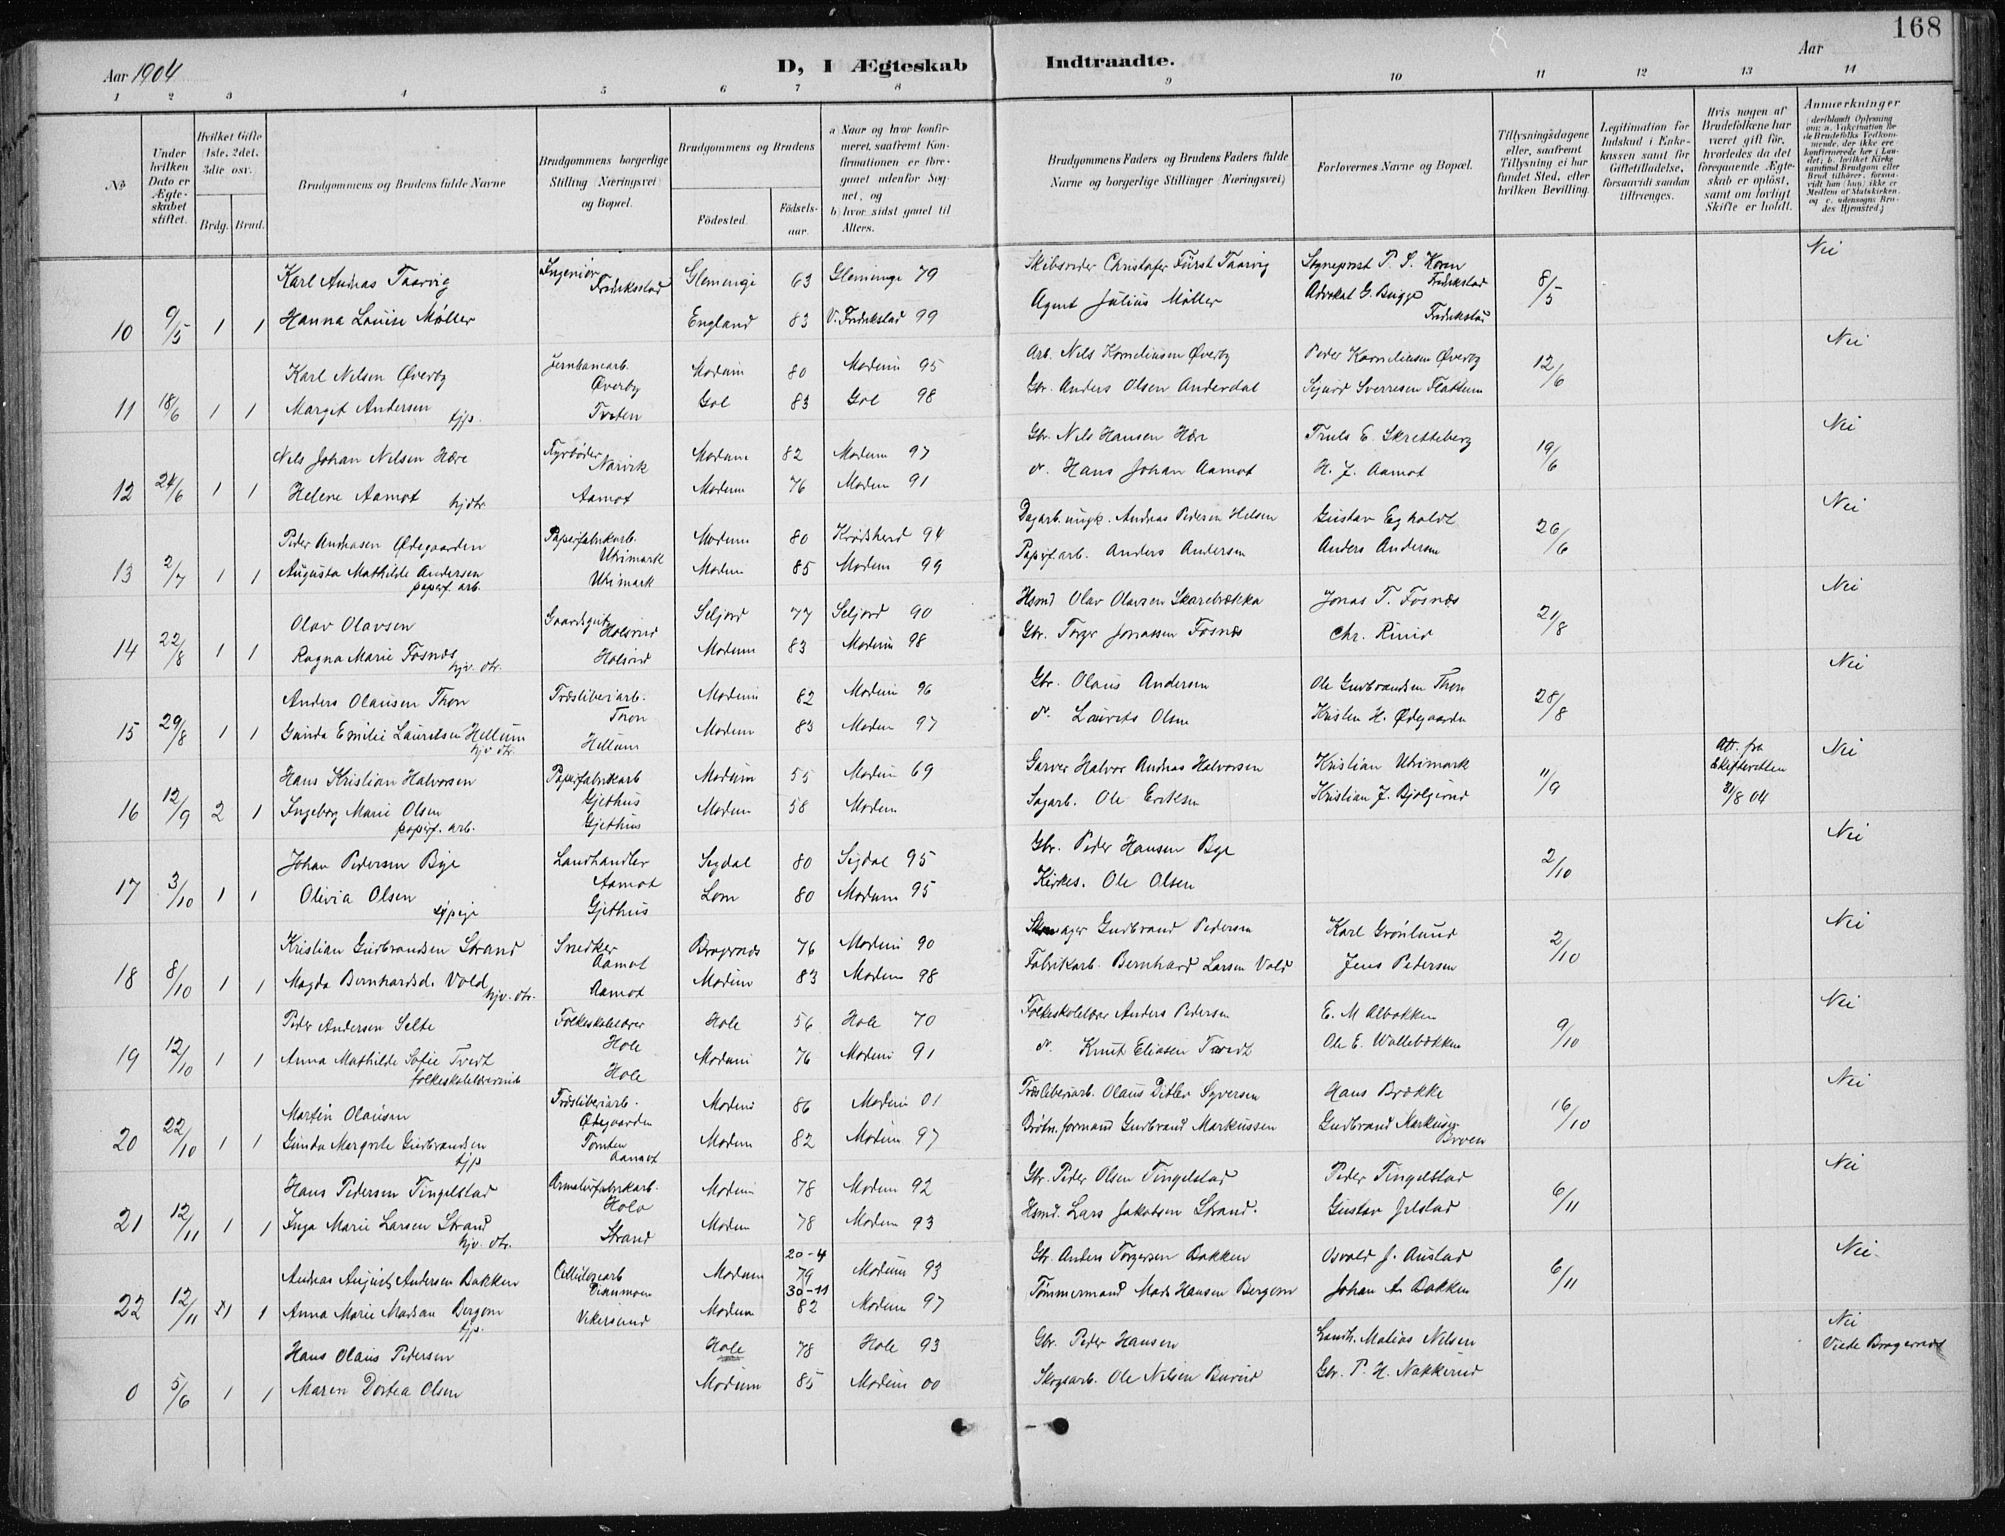 168
Aar 1904
D, I Ægteskab Indtraadte.
Aar
1 2 3 4 5 6 7 8 9 10 11 12 13 14
No.
Under hvilken Dato er Ægteskabet stiftet.
Hvilket Gifte (1ste, 2det, 3die osv.
Brdg. Brud.
Brudgommens og Brudens fulde Navne
Brudgommens borgerlige Stilling (Næringsvei) og Bopæl.
Brudgommens og Brudens
Födested.
Födsels-aar.
a) Naar og hvor konfirmeret, saafremt Konfirmationen er foregaaet udenfor Sognet, og
b) hvor sidst gaaet til Alters.
Brudgommens Faders og Brudens Faders fulde Navne og borgerlige Stillinger (Næringsvei)
Forlovernes Navne og Bopæl.
Tillysningsdagene eller, saafremt Tillysning ei har fundet Sted, efter hvilken Bevilling.
Legitimation for Indskud i Enkekassen samt for Giftetilladelse, forsaavidt saadan tiltrænges.
Hvis nogen af Brudefolkene har været gift før, hvorledes da det foregaaende Ægteskab er opløst, samt om lovligt Skifte er holdt.
Anmerkninger
Karl Andreas Taarvig Ingeniør Fredriksstad Glemminge 63 Glemminge 79 Skibsreder Christofer Fürst Taarvig Sogneprest P. S. Koren Fredrikstad 8/5 Nei
10 9/5 1 1 Hanna Louise Møller England 83 V. Fredrikstad 99 Agent Julius Møller Advokat G. Bugge Fredrikstad
Karl Nelsen Øverby Jernbanearb. Øverby Modum 80 Modum 95 Arb. Nels Korneliusen Øverby Peder Korneliusen Øverby 12/6 Nei
11 18/6 1 1 Margit Andersen tjp. Tveten Gol 83 Gol 98 Gbr. Anders Olsen Anderdal Sigurd Sverresen Flattum
Nels Johan Nelsen Hære Fyrbøder Narvik Modum 82 Modum 97 Gbr. Nels Hansen Hære Truls E. Skretteberg 19/6 Nei
12 24/6 1 1 Helene Aamot hjdtr. Aamot Modum 76 Modum 91 dr. Hans Johan Aamot H. J. Aamot
Peder Andreasen Ødegaarden Papirfabrikarb. Utvimark Modum 80 Krødsherd 94 Dagarb. ungk. Andreas Pedersen Helsen Gustav Egholdt 26/6 Nei
13 2/7 1 1 Augusta Mathilde Andersen papirf. arb. Utvimark Modum 85 Modum 99 Papirf. arb. Anders Andersen Anders Andersen
Olav Olavsen Gaardsgut Holsrud Seljord 77 Seljord 90 Hsmd Olav Olavsen Skarebrækka Jonas T. Fosnæs 21/8 Nei
14 22/8 1 1 Ragna Marie Fosnæs hjv. dtr. Holsrud Modum 83 Modum 98 Gbr. Torger Jonassen Fosnæs Chr. Rinid
Anders Olausen Thon Træsliberiarb. Thon Modum 82 Modum 96 Gbr. Olaus Andersen Ole Gudbrandsen Thon 28/8 Nei
15 29/8 1 1 Gunda Emilie Lauritsen Hellum hjv. dtr. Hellum Modum 83 Modum 97 dr. Laurits Olsen Kristen H. Ødegaarden
Hans Kristian Halvorsen Papirfabrikarb Gjethus Modum 55 Modum 69 Garver Halvor Andreas Halvorsen Kristian Utvimark 11/9 Att. fra Skifteretten 31/8 04 Nei
16 12/9 2 1 Ingeborg Marie Olsen papirf. arb. Gjethus Modum 58 Modum Sagarb. Ole Eriksen Kristian J. Bjølgerud
Johan Pedersen Bye Landhandler Aamot Sigdal 80 Sigdal 95 Gbr. Peder Hansen Bye 2/10 Nei
17 3/10 1 1 Olivia Olsen sypige Gjethus Lom 80 Modum 95 Kirkes. Ole Olsen
Kristian Gudbrandsen Strand Snedker Aamot Bragernes 76 Modum 90 Gudbrand Pedersen Karl Grønlund 2/10 Nei
18 8/10 1 1 Magda Bernhardsd. Vold hjv. dtr. Aamot Modum 83 Modum 98 Fabrikarb. Bernhard Larsen Vold Jens Pedersen
Peder Andersen Selte Folkeskolelærer Hole Hole 56 Hole 70 Folkeskolelærer Anders Pedersen E. M Albakken 9/10 Nei
19 12/10 1 1 Anna Mathilde Sofie Tvedt folkeskolelærerinde Hole Modum 76 Modum 91 dr. Knut Eliasen Tvedt Ole E. Wallebækken
Martin Olausen Træsliberiarb. Ødegaarden Modum 86 Modum 01 Træsliberiarb. Olaus Ditlev Syversen Hans Brække 16/10 Nei
20 22/10 1 1 Gunda Margrete Gudbrandsen tjp Tomten Aamot Modum 82 Modum 97 Brøtn. formand Gudbrand Markussen Gudbrand Markusen Broen
Hans Pedersen Tingelstad Armaturfabrikarb. Holo Modum 78 Modum 92 Gbr. Peder Olsen Tingelstad Peder Tingelstad 6/11 Nei
21 12/11 1 1 Inga Marie Larsen Strand hjv. dtr. Strand Modum 78 Modum 93 Hsmd. Lars Jakobsen Strand. Gustav Jelstad
Andreas August Andersen Bakken Cellulosearb Vikermoen Modum 20-4 79 Modum 93 Gbr. Anders Torgersen Bakken Osvald J. Austad 6/11 Nei
22 12/11 1 1 Anna Marie Madsen Bergom tjp. Vikersund Modum 30-11 82 Modum 97 Tømmermand Mads Hansen Bergom Johan A. Bakken
Hans Olaus Pedersen Hole 78 Hole 93 Gbr. Peder Hansen Landh. Matias Nelsen Nei Viede Bragernes
0 5/6 1 1 Maren Dortea Olsen Modum 85 Modum 00 Skogsarb. Ole Nilsen Burud Gbr. P. H. Nakkerud